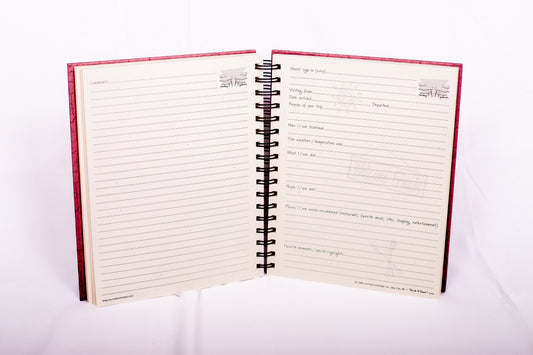 Comments:
Guest sign in (who):
Visiting from
Date arrived
Departed
Purpose of your trip
How I / we traveled
The weather / temperature was
What I / we did
People I / we met
Places I / we would recommend (restaurants, favorite meals, sites, shopping, entertainment)
Favorite moments / special highlights